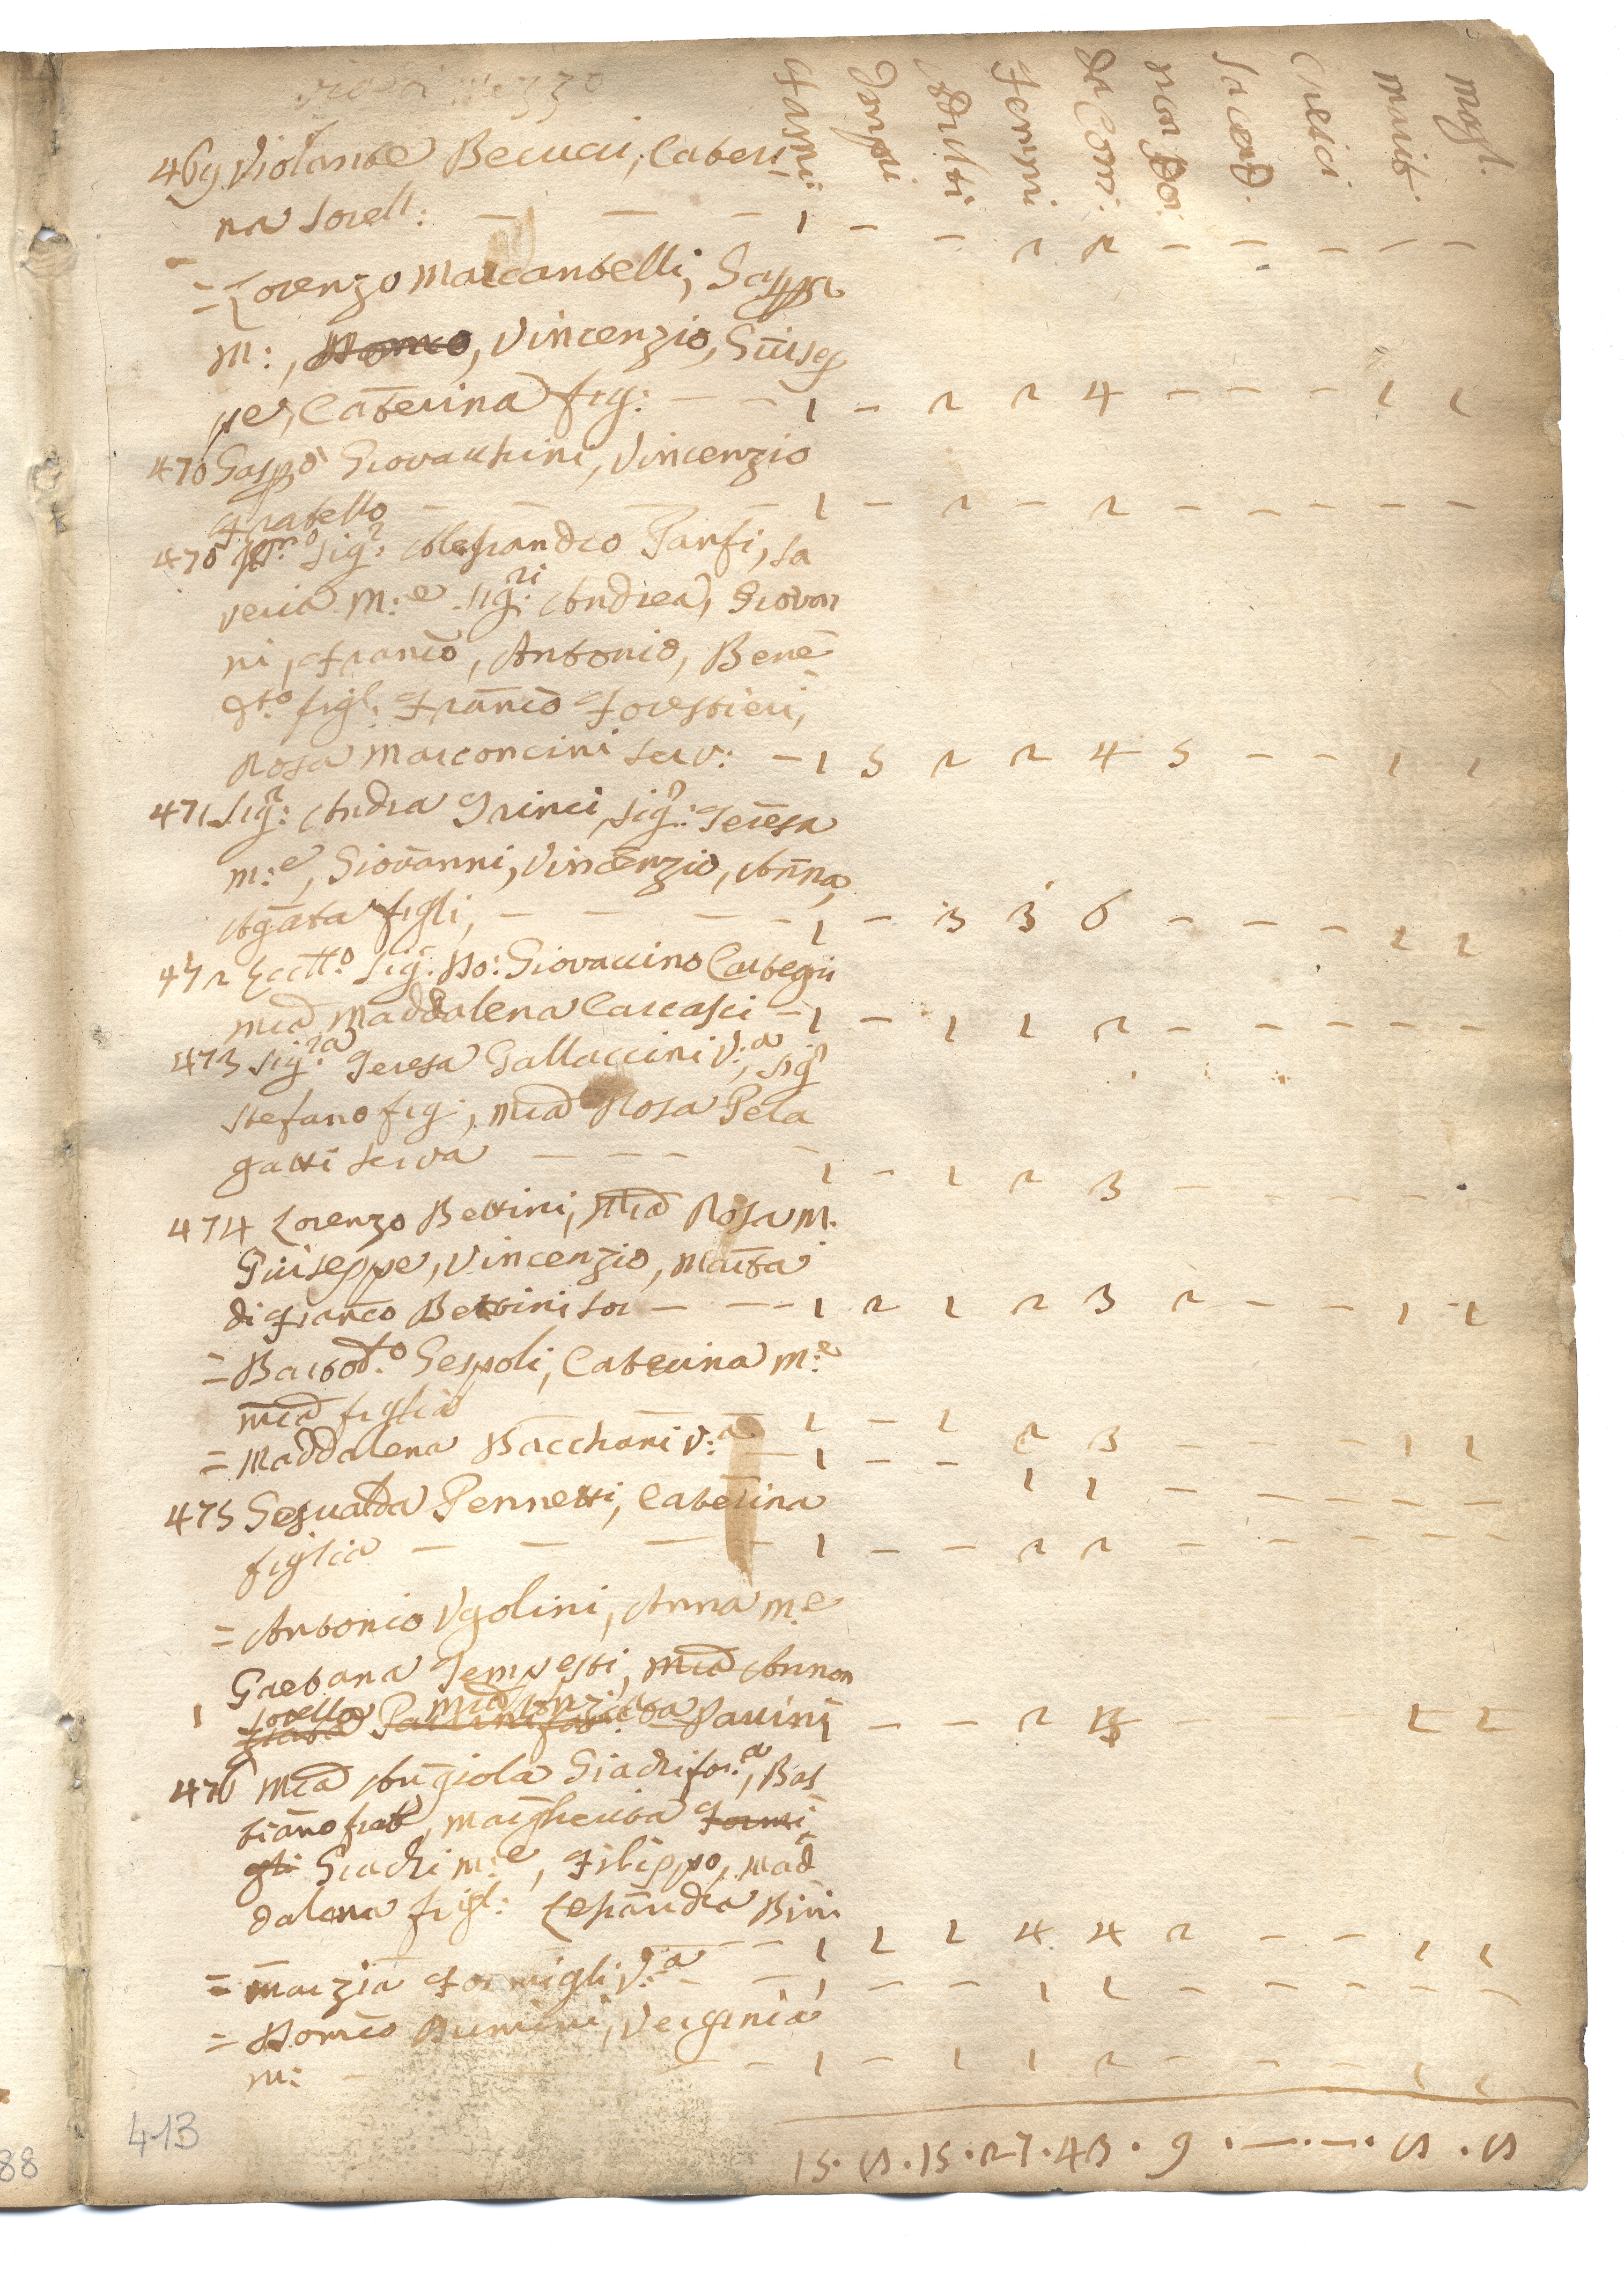 via di mezzo
Fami: Impu Adulti Femi da Com: non da Co: Sacerd. Cherici marit. mogl.
469 Violante Becucci, Cateri
na sorell: — — — 1 — — 2 2 — — — — —
= Lorenzo Marcantelli, Gasppa
M:, Domco, Vincenzio, Giusep
pe, Caterina fig: — — 1 — 2 2 4 — — — 1 1
470 Gaspo Giovacchini, Vincenzio
fratello — — — — 1 — 2 — 2 — — — — —
470 Sigr: Alessandro Panfi, Sa
veria M:e Sigri: Andrea, Giovan
ni, Franco, Antonio, Bene
dto figl: Franco Forestieri,
Rosa Marconcini serv: — 1 5 2 2 4 5 — — 1 1
471 Sigr: Andrea Grinci, Sigr: Teresa
m:e, Giovanni, Vincenzio, Anna,
Agata figli, — — — — 1 — 3 3 6 — — — 1 1
472 Eccllo Sigr: Do: Giovaccino Cortegii
Mia Maddalena Carcasci — 1 — 1 1 2 — — — — —
473 Sigra Teresa Gallaccini V:a, Sigr
Stefano fig:, Mia Rosa Pela
gatti serva — — — — 1 — 1 2 3 — — — — —
474 Lorenzo Bettini, Mia Rosa M.
Giuseppe, Vincenzio, Marta
di Franco Bettini sor — — — 1 2 1 2 3 2 — — 1 1
= Bartoo Gespoli, Caterina M:e
Mia figlia — — 1 — 1 2 3 — — — 1 1
= Maddalena Bacchani V:a — 1 — — 1 1 — — — — —
475 Gesualda Pennetti, Caterina
figlia — — — — 1 — — 2 2 — — — — —
= Antonio Ugolini, Anna M:e
Gaetana Tempesti, Mia Annon
1 sorella Pavini — — 2 3 — 1 1
476 Mia Angiola Giachi sor:a, Bas
tiano frat, Margherita Formi
gli Giachi M:e, Filippo, Mad
dalena figl: Lesandra Bini
— — 1 1 1 4 4 2 — — 1 1
= Marzia Formigli V:a — — 1 — — 1 1 — — — — —
= Domco Bumini, Verginia
M: — — — 1 — 1 1 2 — — — 1 1
15 . 8 . 15 . 27 . 43 . 9 . — . — . 8 . 8
413
88